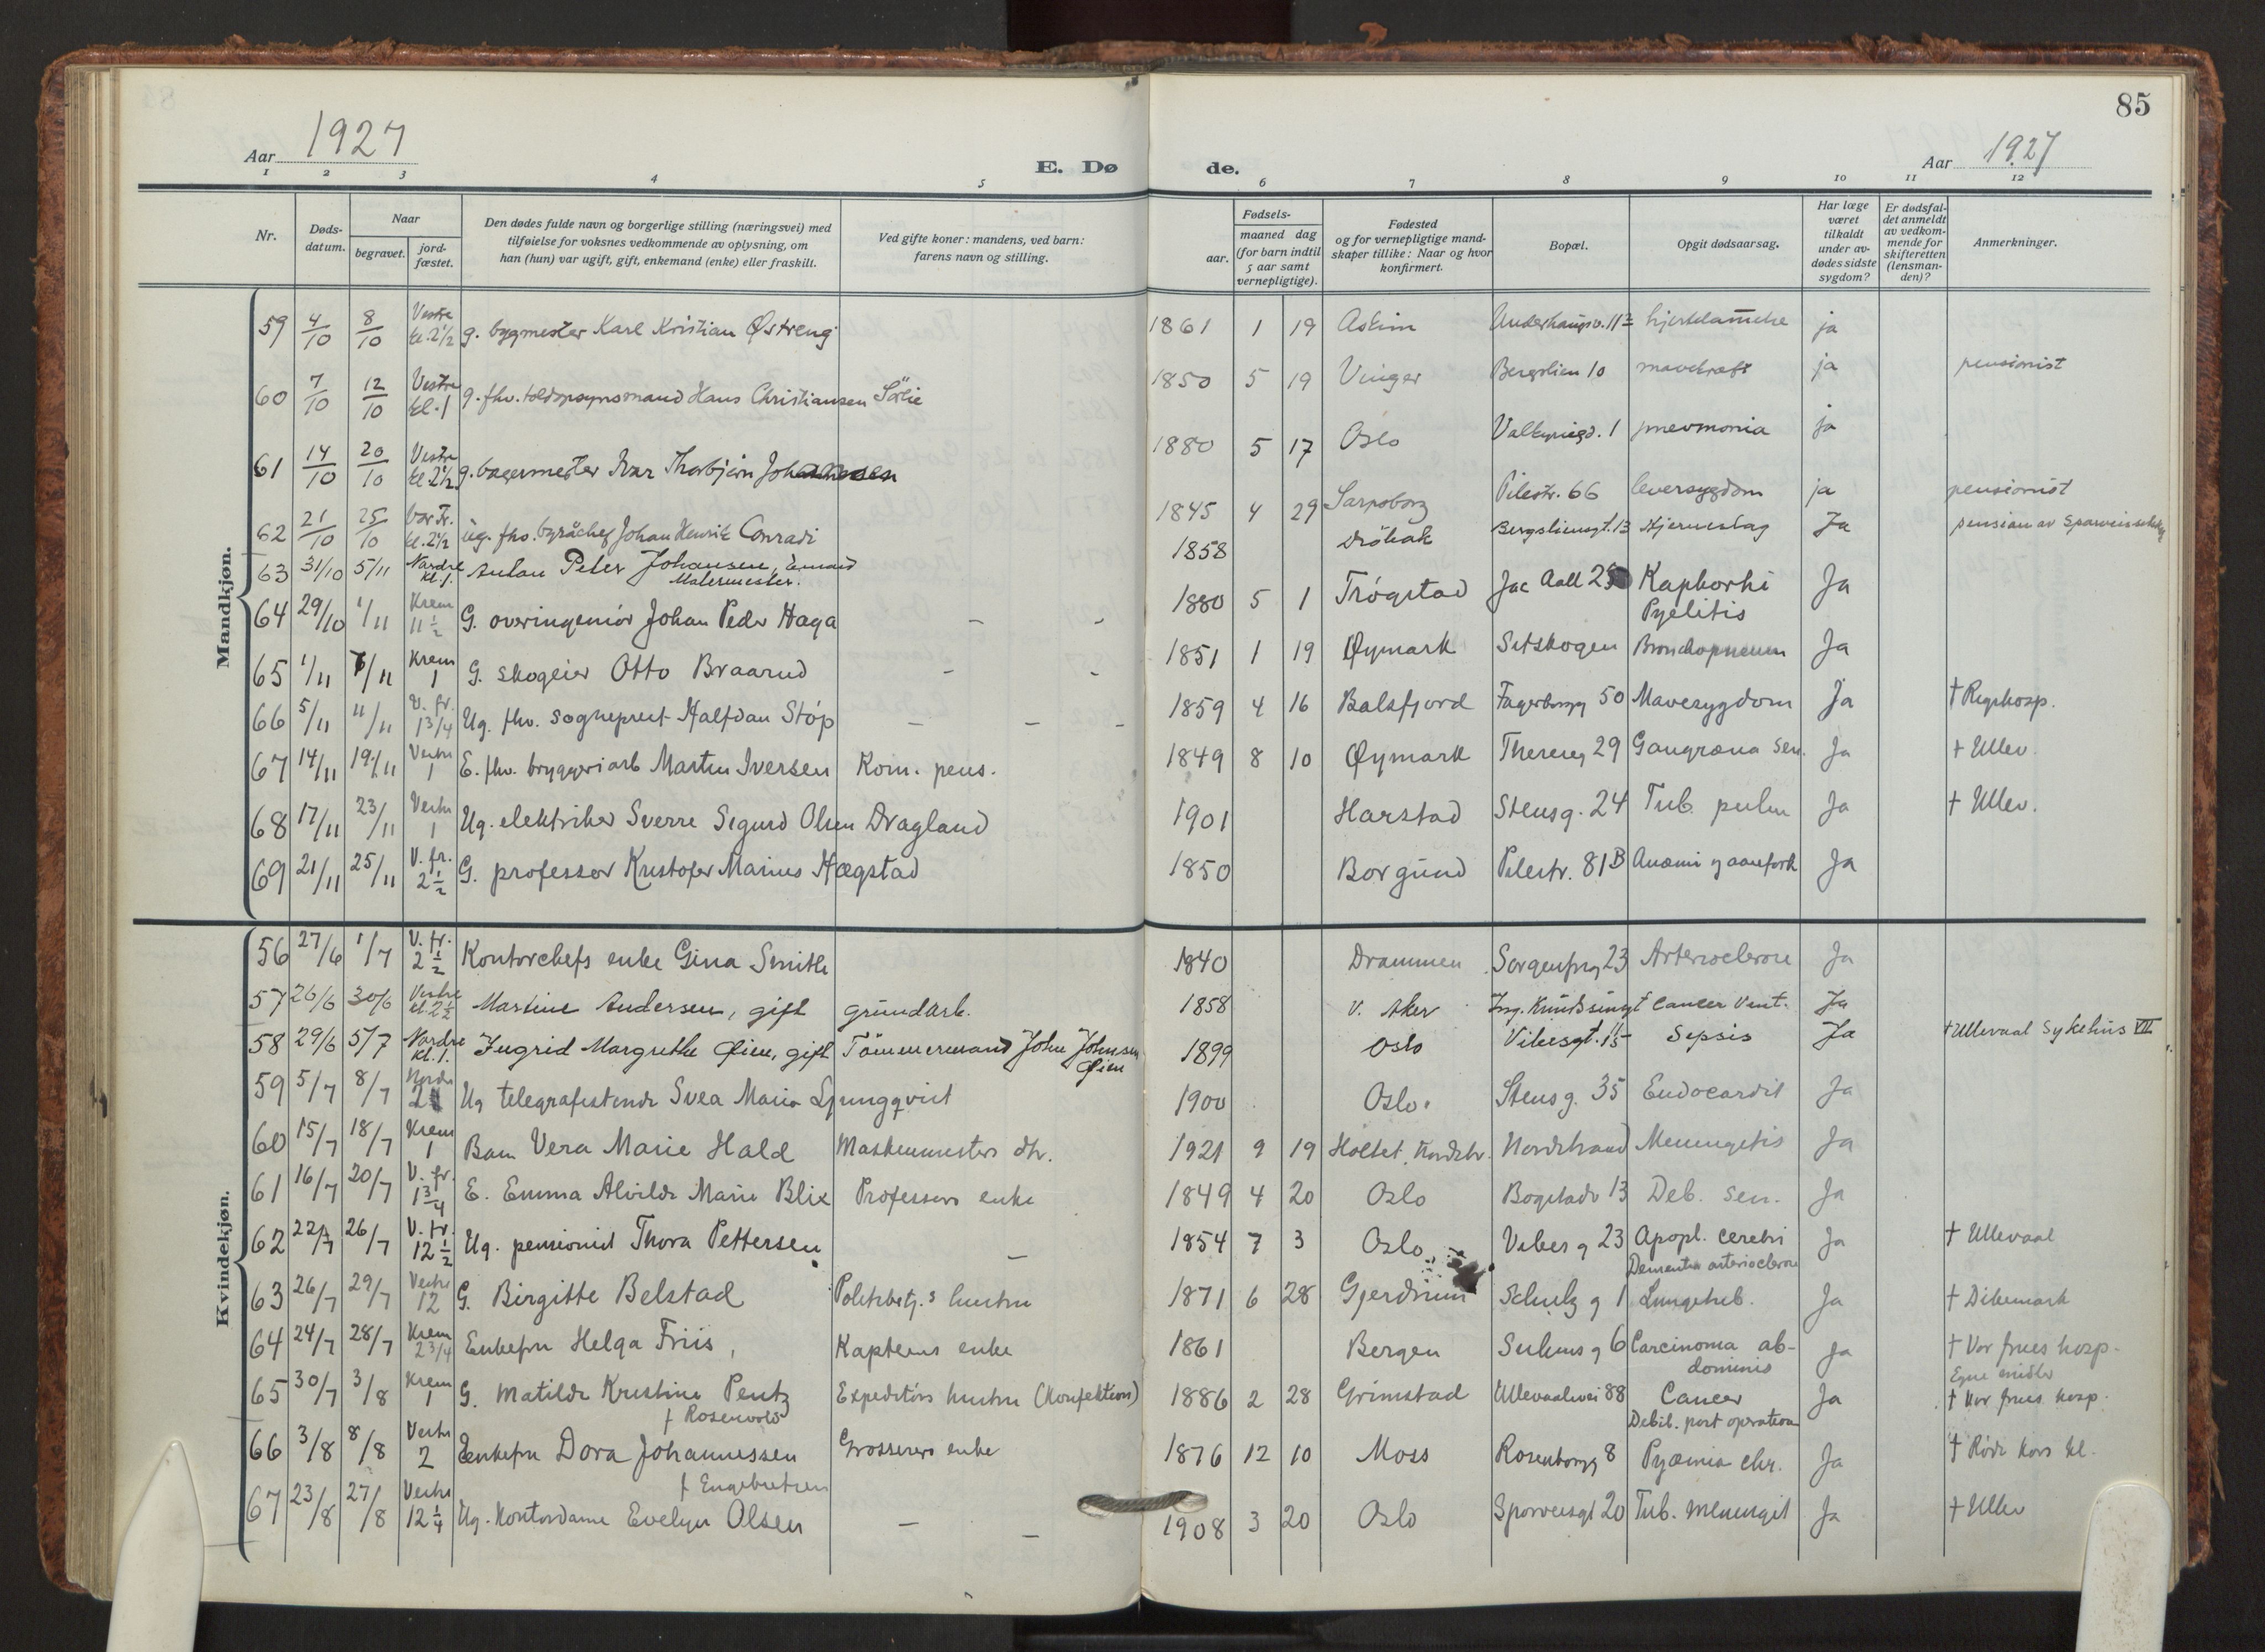 85
Aar 1927
E. Dø de.
Aar 1927
1 2 3 4 5 6 7 8 9 10 11 12
Nr.
Døds-
datum.
Naar
begravet.
jord-
fæstet.
Den dødes fulde navn og borgerlige stilling (næringsvei) med
tilføielse for voksnes vedkommende av oplysning, om
han (hun) var ugift, gift, enkemand (enke) eller fraskilt.
Ved gifte koner: mandens, ved barn:
farens navn og stilling.
Fødsels-
aar.
maaned dag
(for barn indtil
5 aar samt
vernepligtige).
Fødested
og for vernepligtige mand-
skaper tillike: Naar og hvor
konfirmert.
Bopæl.
Opgit dødsaarsag.
Har læge
været
tilkaldt
under av-
dødes sidste
sygdom?
Er dødsfal-
det anmeldt
av vedkom-
mende for
skifteretten
(lensman-
den)?
Anmerkninger.
Mandkjøn.
59 4/10 8/10 Vestre kl. 2 1/2 g. bygmester Karl Kristian Østreng 1861 1 19 Askim hjertelammelse ja
60 7/10 12/10 Vestre kl. 1 g. fhv. toldopsynsmand Hans Christiansen Sölie 1850 5 19 Vinger Bergslien 10 mavekræft ja pensionist
61 14/10 20/10 Vestre kl. 2 1/2 g. bagermester Ivar Thorbjørn Johannesen 1880 5 17 Oslo Valkyriegd. 1 pnevmonia ja
62 21/10 25/10 Vor Fr. kl. 2 1/2 ug. fhv. byråchef Johan Henrik Conradi 1845 4 29 Sarpsborg Pilestr. 66 leversygdom ja pensionist
63 31/10 5/11 Nordre kl. 1. Anton Peter Johansen, enmand Malermester. 1858 Dröbak Bergsliensgt. 13 Hjerneslag Ja pension av
64 29/10 1/11 Krem 11 1/2 G. overingeniör Johan Peder Haga - - 1880 5 1 Trögstad Jac Aall 25 Pyelitis Ja
65 1/11 7/11 Krem 1 G. skogeier Otto Braarud - - 1851 1 19 Øymark Setskogen Bronchopneum Ja
66 5/11 11/11 V. fr. 1 3/4 Ug. fhv. sogneprest Halfdan Stöp - - - 1859 4 16 Balsfjord Fagerborgg 50 Mavesygdom Ja † Rigshosp.
67 14/11 19/11 Vestre 1 E. fhv. bryggeriarb Martin Iversen Kom. pens. 1849 8 10 Øymark Theresesg 29 Gangræna sen. Ja † Ullev.
68 17/11 23/11 Vestre 1 Ug. elektriker Sverre Sigurd Olsen Dragland 1901 Harstad Stensg. 24 Tub. pulm Ja † Ullev.
69 21/11 25/11 V. fr. 2 1/2 G. professor Kristofer Marius Hægstad 1850 Borgund Pilestr. 81B Anæmi og aarefork Ja
Kvindekjøn.
56 27/6 1/7 V. fr. 2 1/2 Kontorchefs enke Gina Smith 1840 Drammen Sorgenfrig 23 Arteriosclerose Ja
57 26/6 30/6 Vestre kl. 2 1/2 Martine Andersen, gift grundarb. 1858 V. Aker cancer Vent. Ja
58 29/6 5/7 Nordre kl. 1. Ingrid Margrethe Øien, gift Tömmermand John Johnsen Øien 1899 Oslo Vibesgt. 15 Sepsis Ja † Ullevaal Sykehus VII.
59 5/7 8/7 Nordre 2 Ug telegrafistinde Svea Maria Ljungqvist 1900 Oslo. Stensg. 35 Endocardit Ja
60 15/7 18/7 Krem 1 Barn Vera Marie Hald Maskinmesters dtr. 1921 9 19 Holtet, Nordstr. Nordstrand Meningitis Ja
61 16/7 20/7 V. fr. 1 3/4 E. Emma Alvilde Marie Blix Professors enke 1849 4 20 Oslo Bogstadv 13 Deb. sen. Ja
62 22/7 26/7 V. fr. 12 1/2 Ug. pensionist Thora Pettersen - 1854 7 3 Oslo Vibes g 23 Apopl. cerebri Ja † Ullevaal
63 26/7 29/7 Vestre 12 G. Birgitte Belstad Politibetj.s hustru 1871 6 28 Gjerdrum Schulz g 1 Dementia arteriosclerose Lungetub. Ja † Dikemark
64 24/7 28/7 Krem 2 3/4 Enkefru Helga Friis, Kapteins enke 1861 Bergen 6 Carcinoma ab- dominis Ja † Vor frues hosp.
65 30/7 3/8 Krem 1 G. Matilde Kristine Pentz f Rosenvold Expeditörs hustru (Konfektion) 1886 2 28 Grimstad Ullevaalsvei 88 Cancer Debil. post operation Ja Egne midler † Vor frues hosp.
66 3/8 8/8 Vestre 2 Enkefru Dora Johannessen f Engebretsen Grosserers enke 1876 12 10 Moss Rosenborgg 8 Pyæmia chr. Ja † Röde Kors kl.
67 23/8 27/8 Vestre 12 1/4 Ug. Kontordame Evelyn Olsen - - 1908 3 20 Oslo Sporveisgt 20 Tub. meningit Ja † Ullev